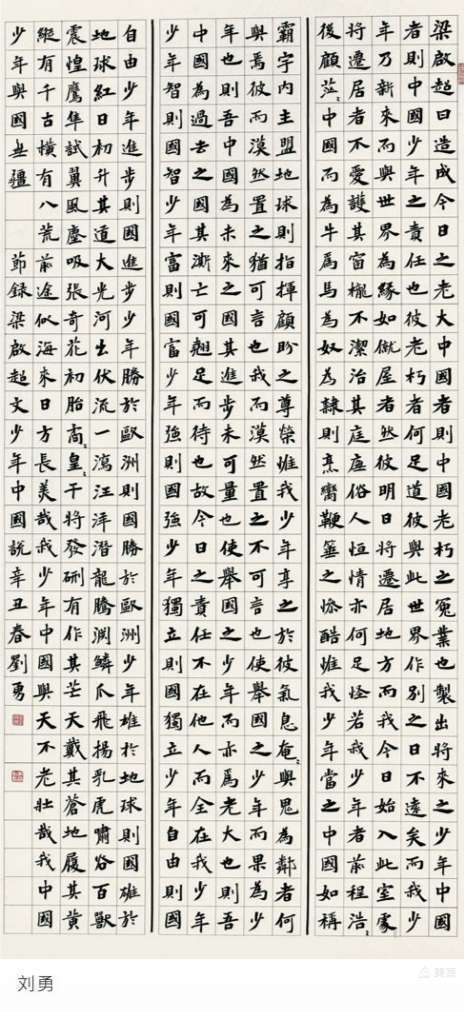 梁啟超曰造成今日之老大中國者則中國老朽之冤業也製出將來之少年中國
者則中國少年之責任也彼老朽者何足道彼與此世界作別之日不遠矣而我少
年乃新來而與世界為緣如僦屋者然彼明日將遷居地方而我今日始入此室處
將遷居者不愛護其窗櫳不潔治其庭廡俗人恒情亦何足怪若我少年者前程浩〻
後顧茫〻中國而為牛為馬為奴為隸則烹臠鞭箠之慘酷惟我少年當之中國如稱
霸宇內主盟地球則指揮顧盼之尊榮惟我少年享之於彼氣息奄〻與鬼為鄰者何
與焉彼而漠然置之猶可言也我而漠然置之不可言也使舉國之少年而果為少
年也則吾中國為未來之國其進步未可量也使舉國之少年而亦為老大也則吾
中國為過去之國其澌亡可翹足而待也故今日之責任不在他人而全在我少年
少年智則國智少年富則國富少年強則國強少年獨立則國獨立少年自由則國
自由少年進步則國進步少年勝於歐洲則國勝於歐洲少年雄於地球則國雄於
地球紅日初升其道大光河出伏流一瀉汪洋潛龍騰淵鱗爪飛揚乳虎嘯谷百獸
震惶鷹隼試翼風塵吸張奇花初胎矞〻皇〻干將發硎有作其芒天戴其蒼地履其黃
縱有千古橫有八荒前途似海來日方長美哉我少年中國與天不老壯哉我中國
少年與國無疆 節錄梁啟超文少年中國說辛丑春劉勇
刘勇